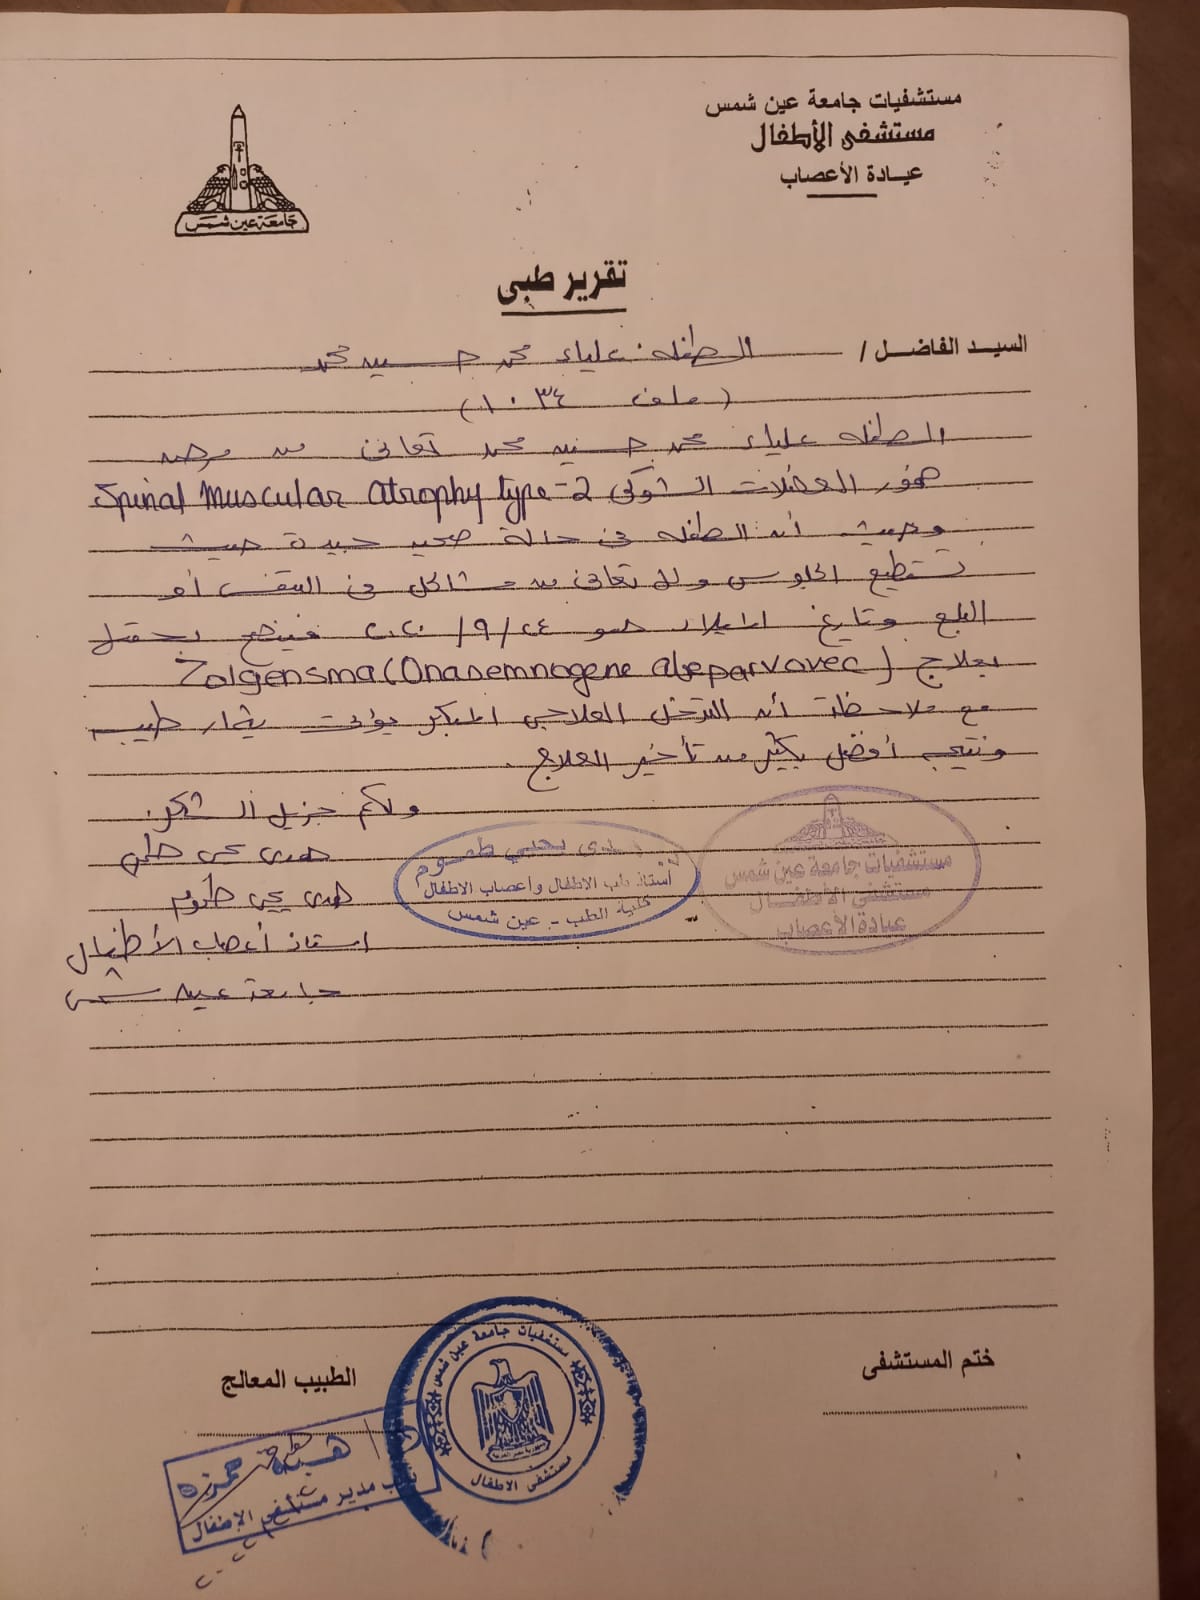 مستشفيات جامعة عين شمس
مستشفى الأطفال
عيادة الأعصاب
جامعة عين شمس
تقرير طبى
السيد الفاضل / الطفله علياء محمد حسين محمد
(ملف ١٠٣٤)
الطفله علياء محمد حسين محمد تعانى من مرض
ضمور العضلات الشوكى Spinal Muscular Atrophy type-2
وحيث أن الطفله فى حالة صحيه جيدة حيث
تستطيع الجلوس ولا تعانى من مشاكل فى التنفس أو
البلع وتاريخ الميلاد هو ٢٠٢٠/٩/٢٤ فينصح
بعلاج Zolgensma (Onasemnogene abeparvovec)
مع ملاحظة أن التدخل العلاجى المبكر يؤتى بثمار طيبه
ونتيجه أفضل بكثير من تأخير العلاج.
ولكم جزيل الشكر
هدى يحيى طموم
استاذ أعصاب الأطفال
جامعة عين شمس
هدى يحيي طموم
أستاذ طب الاطفال وأعصاب الاطفال
كلية الطب - عين شمس
مستشفيات جامعة عين شمس
مستشفى الأطفال
عيادة الأعصاب
ختم المستشفى
الطبيب المعالج
مستشفيات جامعة عين شمس
مستشفى الاطفال
حمزه
نائب مدير مستشفى الاطفال